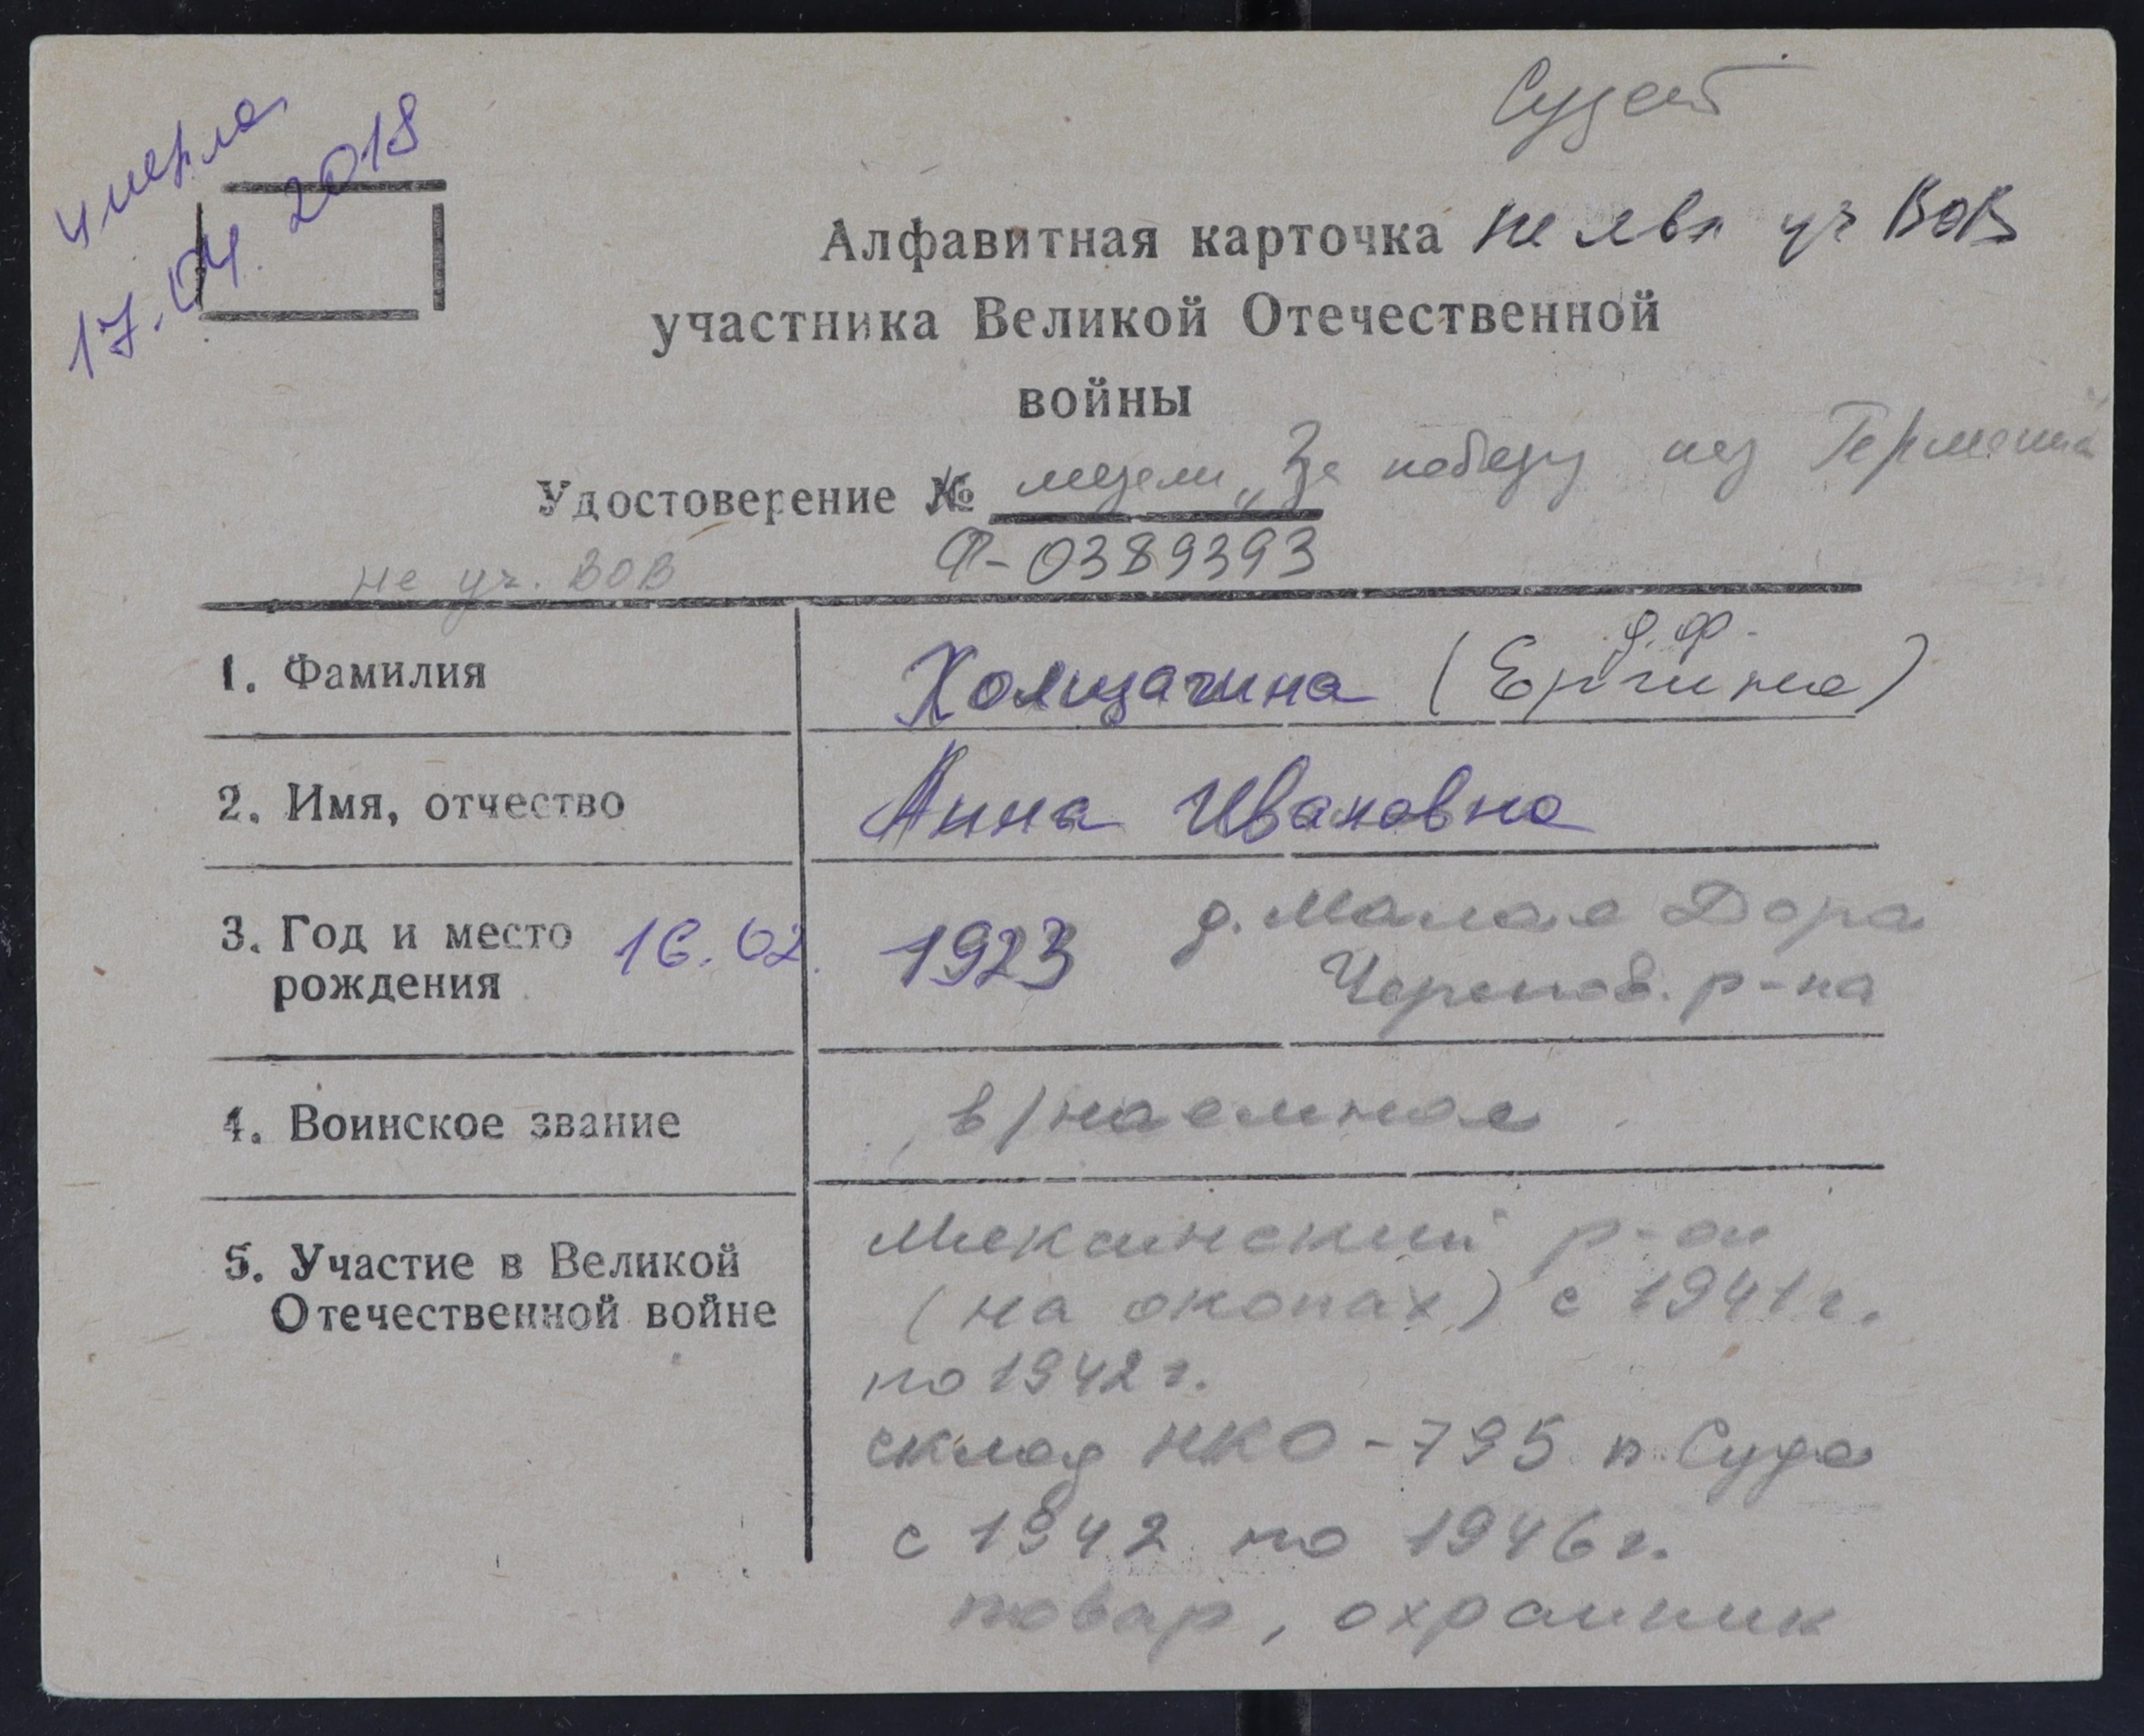 умерла
17.04.2018
Судст
Алфавитная карточка не явл уч ВОВ
участника Великой Отечественной
войны
Удостоверение № медели „За победу над Германий
Ф-0389393
не уч. ВОВ
д.ф.
1. Фамилия Холщагина (Ергина)
2. Имя, отчество Анна Ивановна
3. Год и место 16.02. 1923 д. Малая Дора
рождения Черепов. р-на
4. Воинское звание в/наемная
5. Участие в Великой Мяксинский р-он
Отечественной войне (на окопах) с 1941г.
по 1942г.
склад НКО-795 п. Суда
с 1942 по 1946г.
повар, охранник